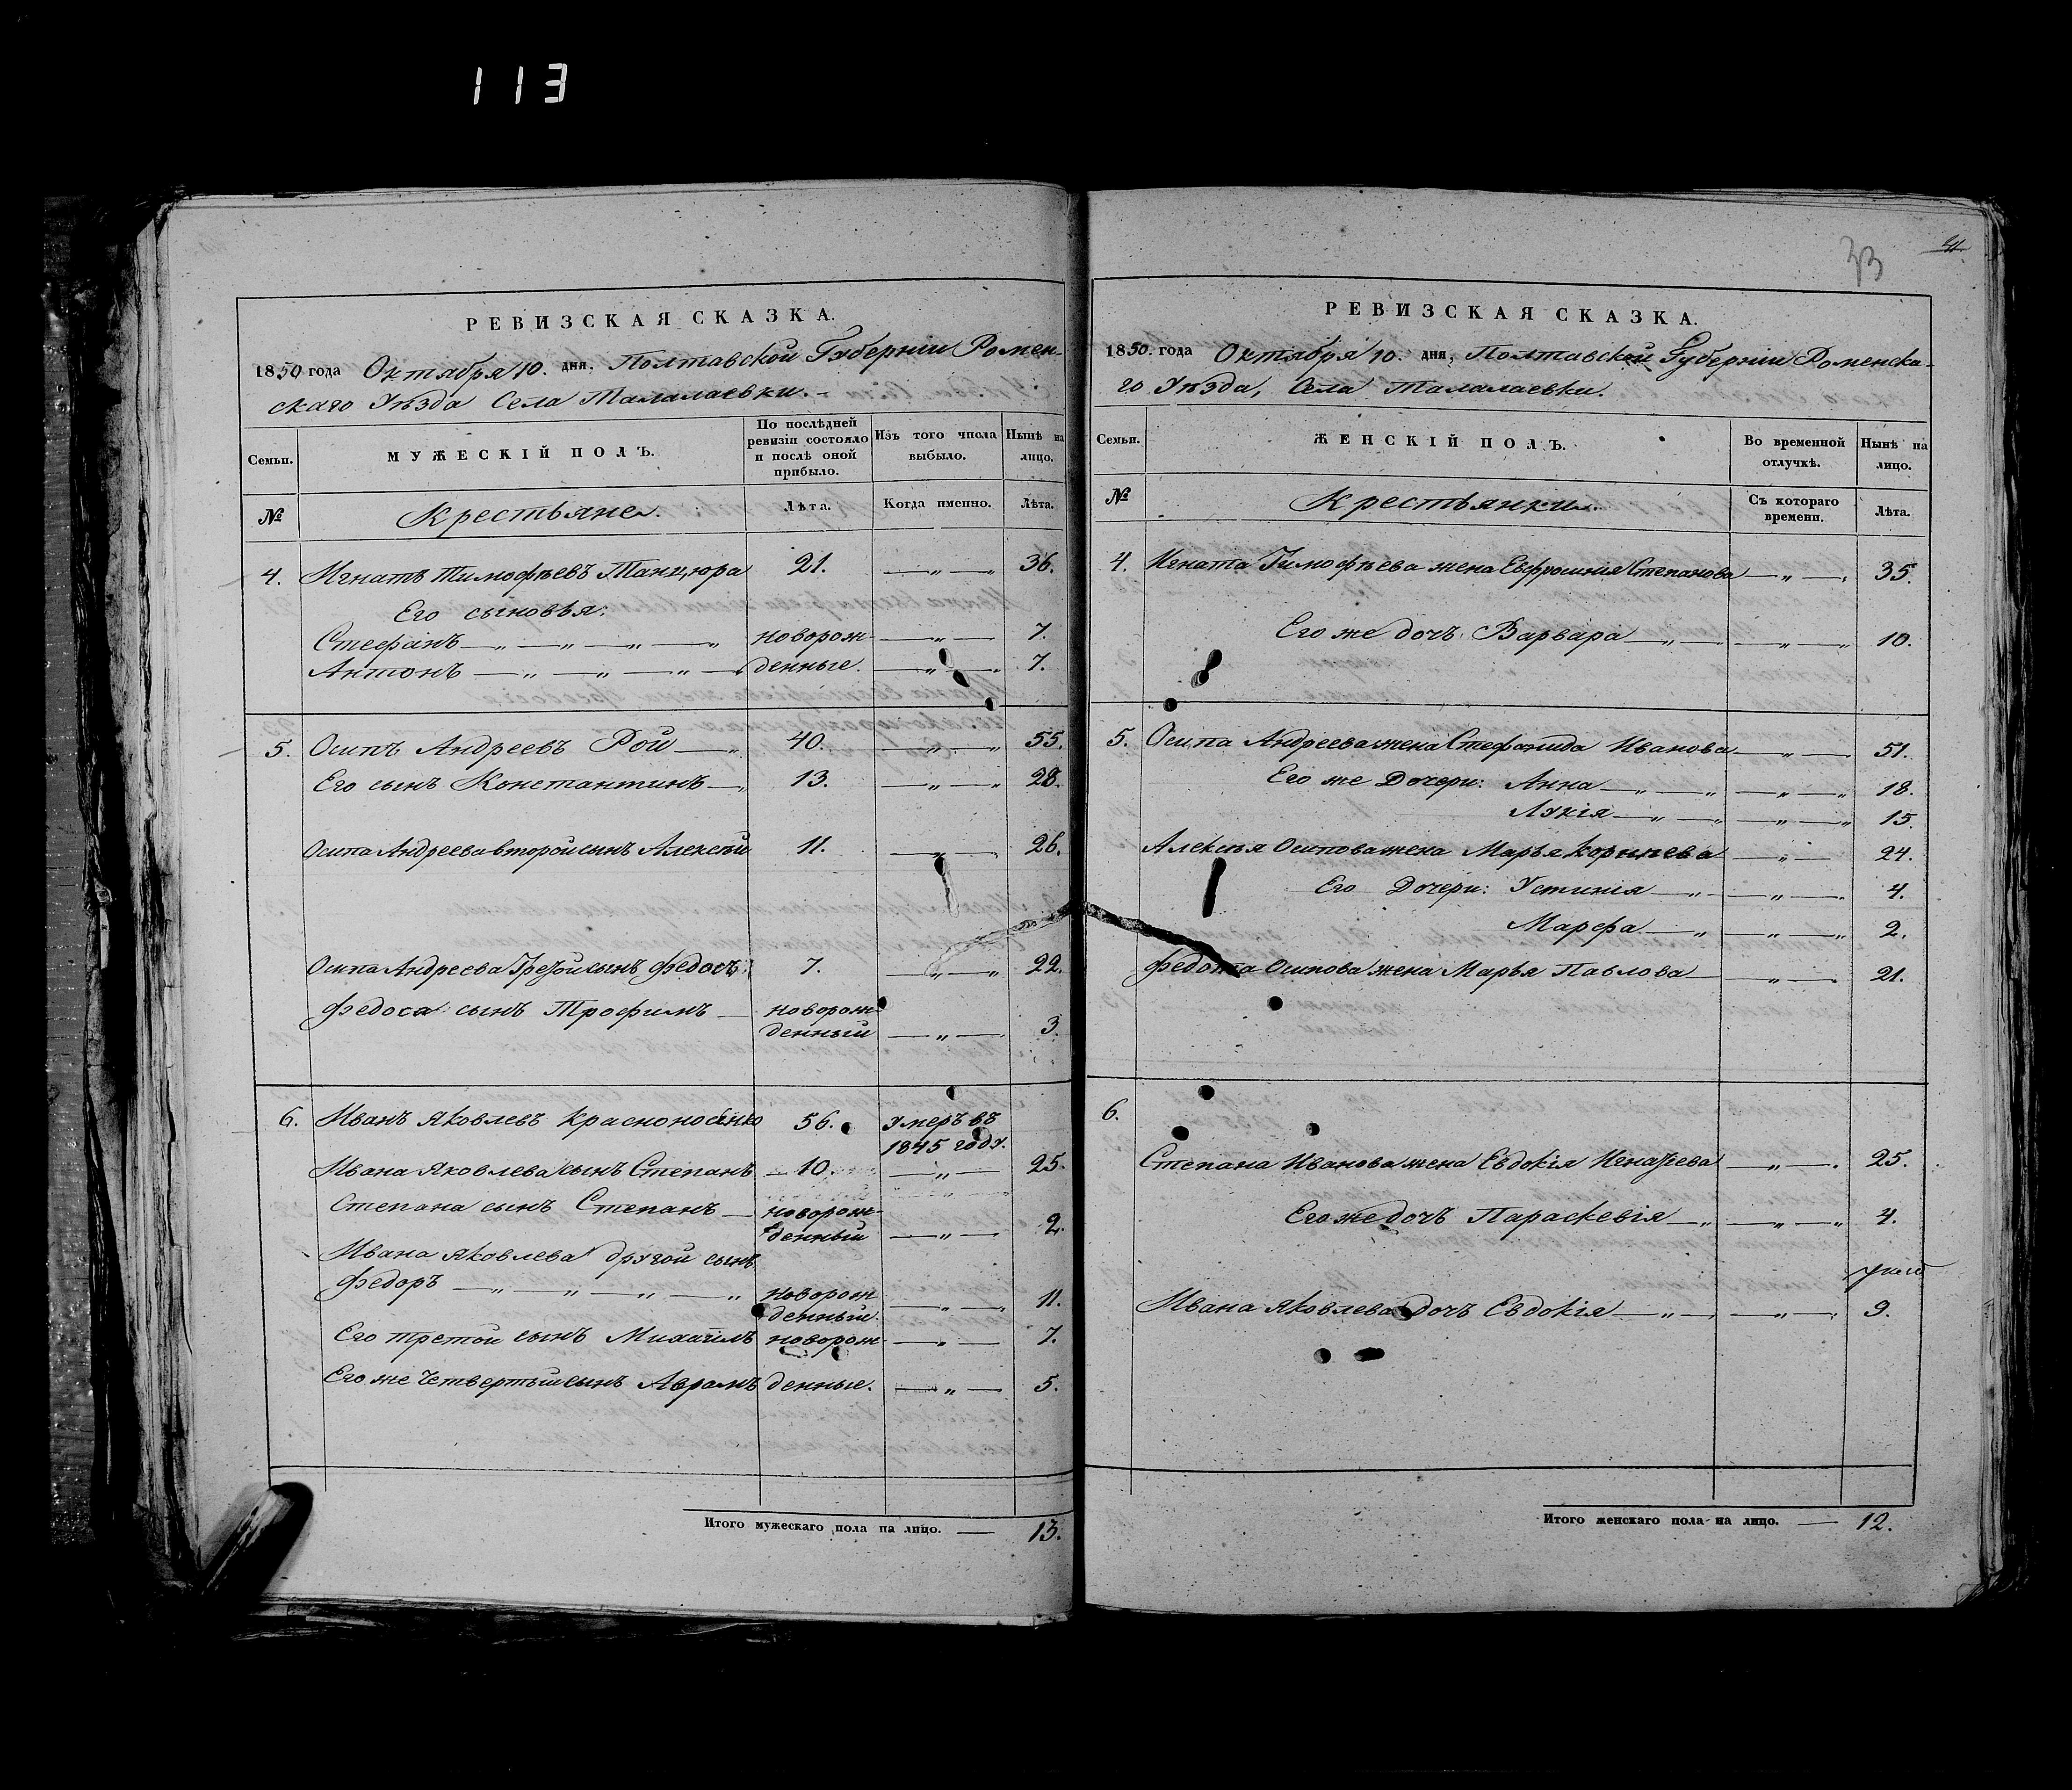 113
РЕВИЗСКАЯ СКАЗКА.
1850 года Октября 10. дня. Полтавской Губерніи Ромен-
скаго Уѣзда Села Талалаевки.
Семьи. МУЖЕСКІЙ ПОЛЪ. По послѣдней ревизіи состояло и послѣ оной прибыло. Изъ того числа выбыло. Нынѣ на лицо.
№ Крестьяне. Лѣта. Когда именно. Лѣта.
4. Игнатъ Тимофѣевъ Танцюра 21. —„—„ 36.
Его сыновья:
Стефанъ —„—„—„—„ новорож- —„— 7.
Антонъ —„—„—„— денные. —„—„ 7.
5. Осипъ Андреевъ Рой —„ 40. —„—„ 55.
Его сынъ Константинъ —„ 13. —„—„ 28.
Осипа Андреева второй сынъ Алексѣй 11. —„— 26.
Осипа Андреева Третой сынъ Федосъ 7. —„—„ 22.
Федоса сынъ Трофимъ — новорож-
денный —„— 3
6. Иванъ Яковлевъ Красноносенко 56. Умеръ въ
1845 году.
Ивана Яковлева сынъ Степанъ 10. —„— 25.
Степана сынъ Степанъ — новорож-
денный —„— 2.
Ивана Яковлева другой сынъ
Федоръ —„—„—„—„ новорож
денный —„—„ 11.
Его третой сынъ Михаилъ новорож —„— 7.
Его же Четвертый сынъ Аврамъ денные. —„— 5.
Итого мужескаго пола на лицо. — 13.
33
РЕВИЗСКАЯ СКАЗКА.
1850. года Октября 10. дня, Полтавской Губерніи Роменска-
го Уѣзда, Села Талалаевки.
Семьи. ЖЕНСКІЙ ПОЛЪ. Во временной отлучкѣ. Нынѣ на лицо.
№ Крестьянки. Съ котораго времени. Лѣта.
4. Игната Тимофѣева жена Евфросинія Степанова —„—„ 35.
Его же дочь: Варвара —„— —„—„ 10.
5. Осипа Андреева жена Стефанида Иванова —„— 51.
Его же Дочери: Анна —„—„ —„—„ 18.
Лукія —„—„ —„—„ 15.
Алексѣя Осипова жена Марья Корнѣева —„— 24.
Его Дочери: Устинія —„— —„—„ 4.
Марфа —„ —„—„ 2.
Федота Осипова жена Марья Павлова —„— 21.
6.
Степана Иванова жена Евдокія —„— 25.
Его же дочъ Параскевія —„ —„—„ 4.
Ивана Яковлева дочъ Евдокія —„— —„—„ 9.
Итого женскаго пола на лицо. — 12.